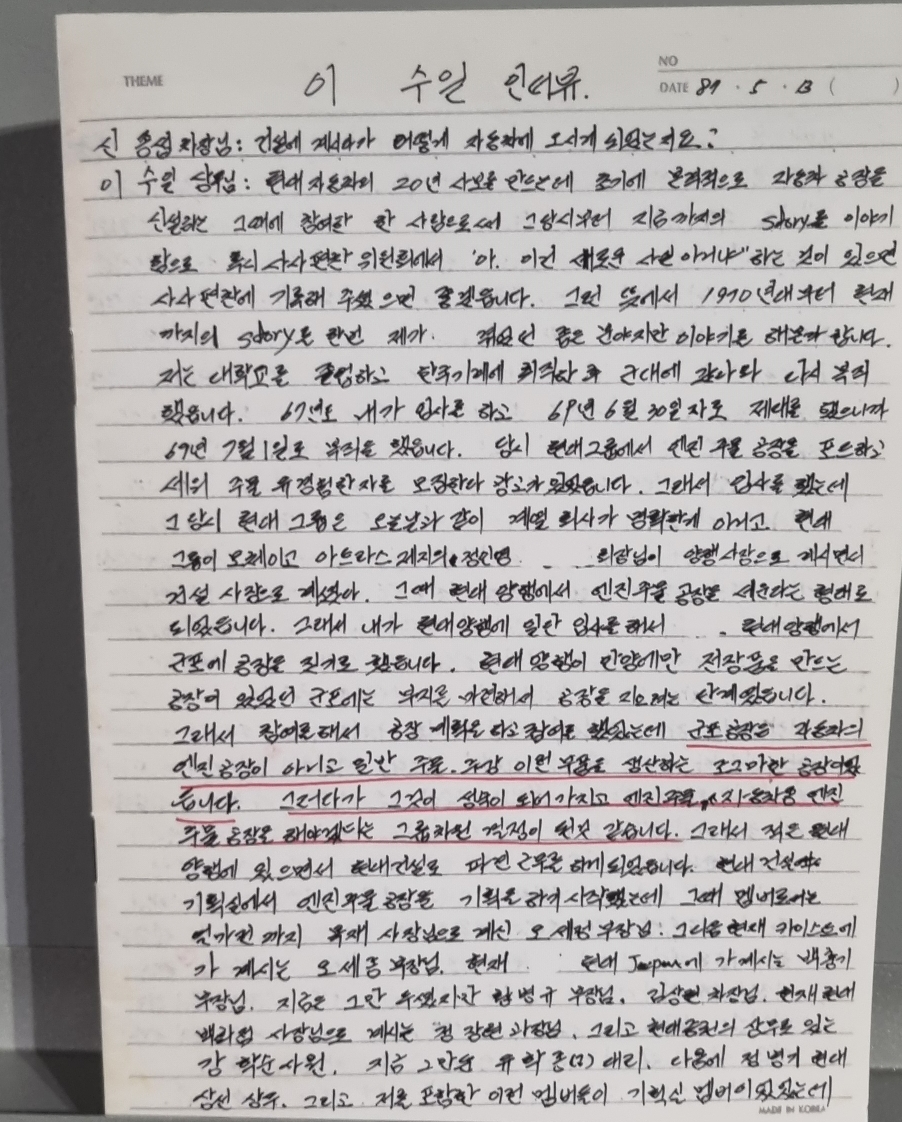 THEME
이 수일 인터뷰.
NO
DATE 89 . 5 . 13 ( )
신 종섭 차장님: 건설에 계시다가 어떻게 자동차에 오시게 되었는지요?
이 수일 상무님: 현대자동차의 20년 사보를 만드는데 초기에 본격적으로 자동차 공장을
신설하는 그때에 참여한 한 사람으로써 그당시부터 지금까지의 story를 이야기
함으로 혹시 사사편찬 위원회에서 "아. 이건 새로운 사실 아니냐" 하는 것이 있으면
사사편찬에 기록해 주셨으면 좋겠읍니다. 그런 뜻에서 1970년대부터 현재
까지의 story를 한번 제가 겪었던 좁은 분야지만 이야기를 해볼까 합니다.
저는 대학교를 졸업하고 한국기계에 취직한 후 군대에 갔다와 다시 복직
했읍니다. 67년도 내가 입사를 하고 69년 6월 30일자로 제대를 했으니까
69년 7월 1일로 복직을 했읍니다. 당시 현대그룹에서 엔진 주물 공장을 포드하고
세워 주물 유경험한자를 모집한다 광고가 있었읍니다. 그래서 입사를 했는데
그 당시 현대 그룹은 오늘날과 같이 계열 회사가 명확한게 아니고 현대
그룹이 모체이고 정인영 회장님이 양행사장으로 계시면서
건설 사장으로 계셨다. 그때 현대 양행에서 엔진주물 공장을 세운다는 형태로
되었읍니다. 그래서 내가 현대양행에 일단 입사를 해서 현대양행에서
군포에 공장을 짓기로 했읍니다. 현대 양행이 안양에만 만드는
공장이 있었던 군포에는 부지를 마련해서 공장을 지으려는 단계였읍니다.
그래서 참여를 해서 공장 계획을 하고 참여를 했었는데 군포공장은 자동차의
엔진공장이 아니고 일반 주물. 주강 이런 부품을 생산하는 조그마한 공장이었
읍니다. 그러다가 그것이 성숙이 되어가지고 엔진주물, 자동차용 엔진
주물 공장을 해야겠다는 그룹차원 결정이 된것 같습니다. 그래서 적은 현대
양행에 있으면서 현대건설로 파견 근무를 하게 되었읍니다. 현대 건설
기획실에서 엔진주물공장을 기획을 하기 시작했는데 그때 멤버로는
얼마전 까지 목재 사장님으로 계신 오 세영 부장님. 그다음 현재 카이스트에
가 계시는 오세종 부장님. 현재 현대 Japan에 가 계시는 백충기
부장님. 지금은 그만 두셨지만 병규 부장님. 김상헌 차장님. 현재 현대
사장님으로 계시는 정 장현 과장님. 그리고 현대 상무로 있는
강 학순사원. 지금 그만둔 유학종(?) 대리. 다음에 정 병기 현대
상선 상무. 그리고 저를 포함한 이런 멤버들이 기획실 멤버이었었는데
MADE IN KOREA